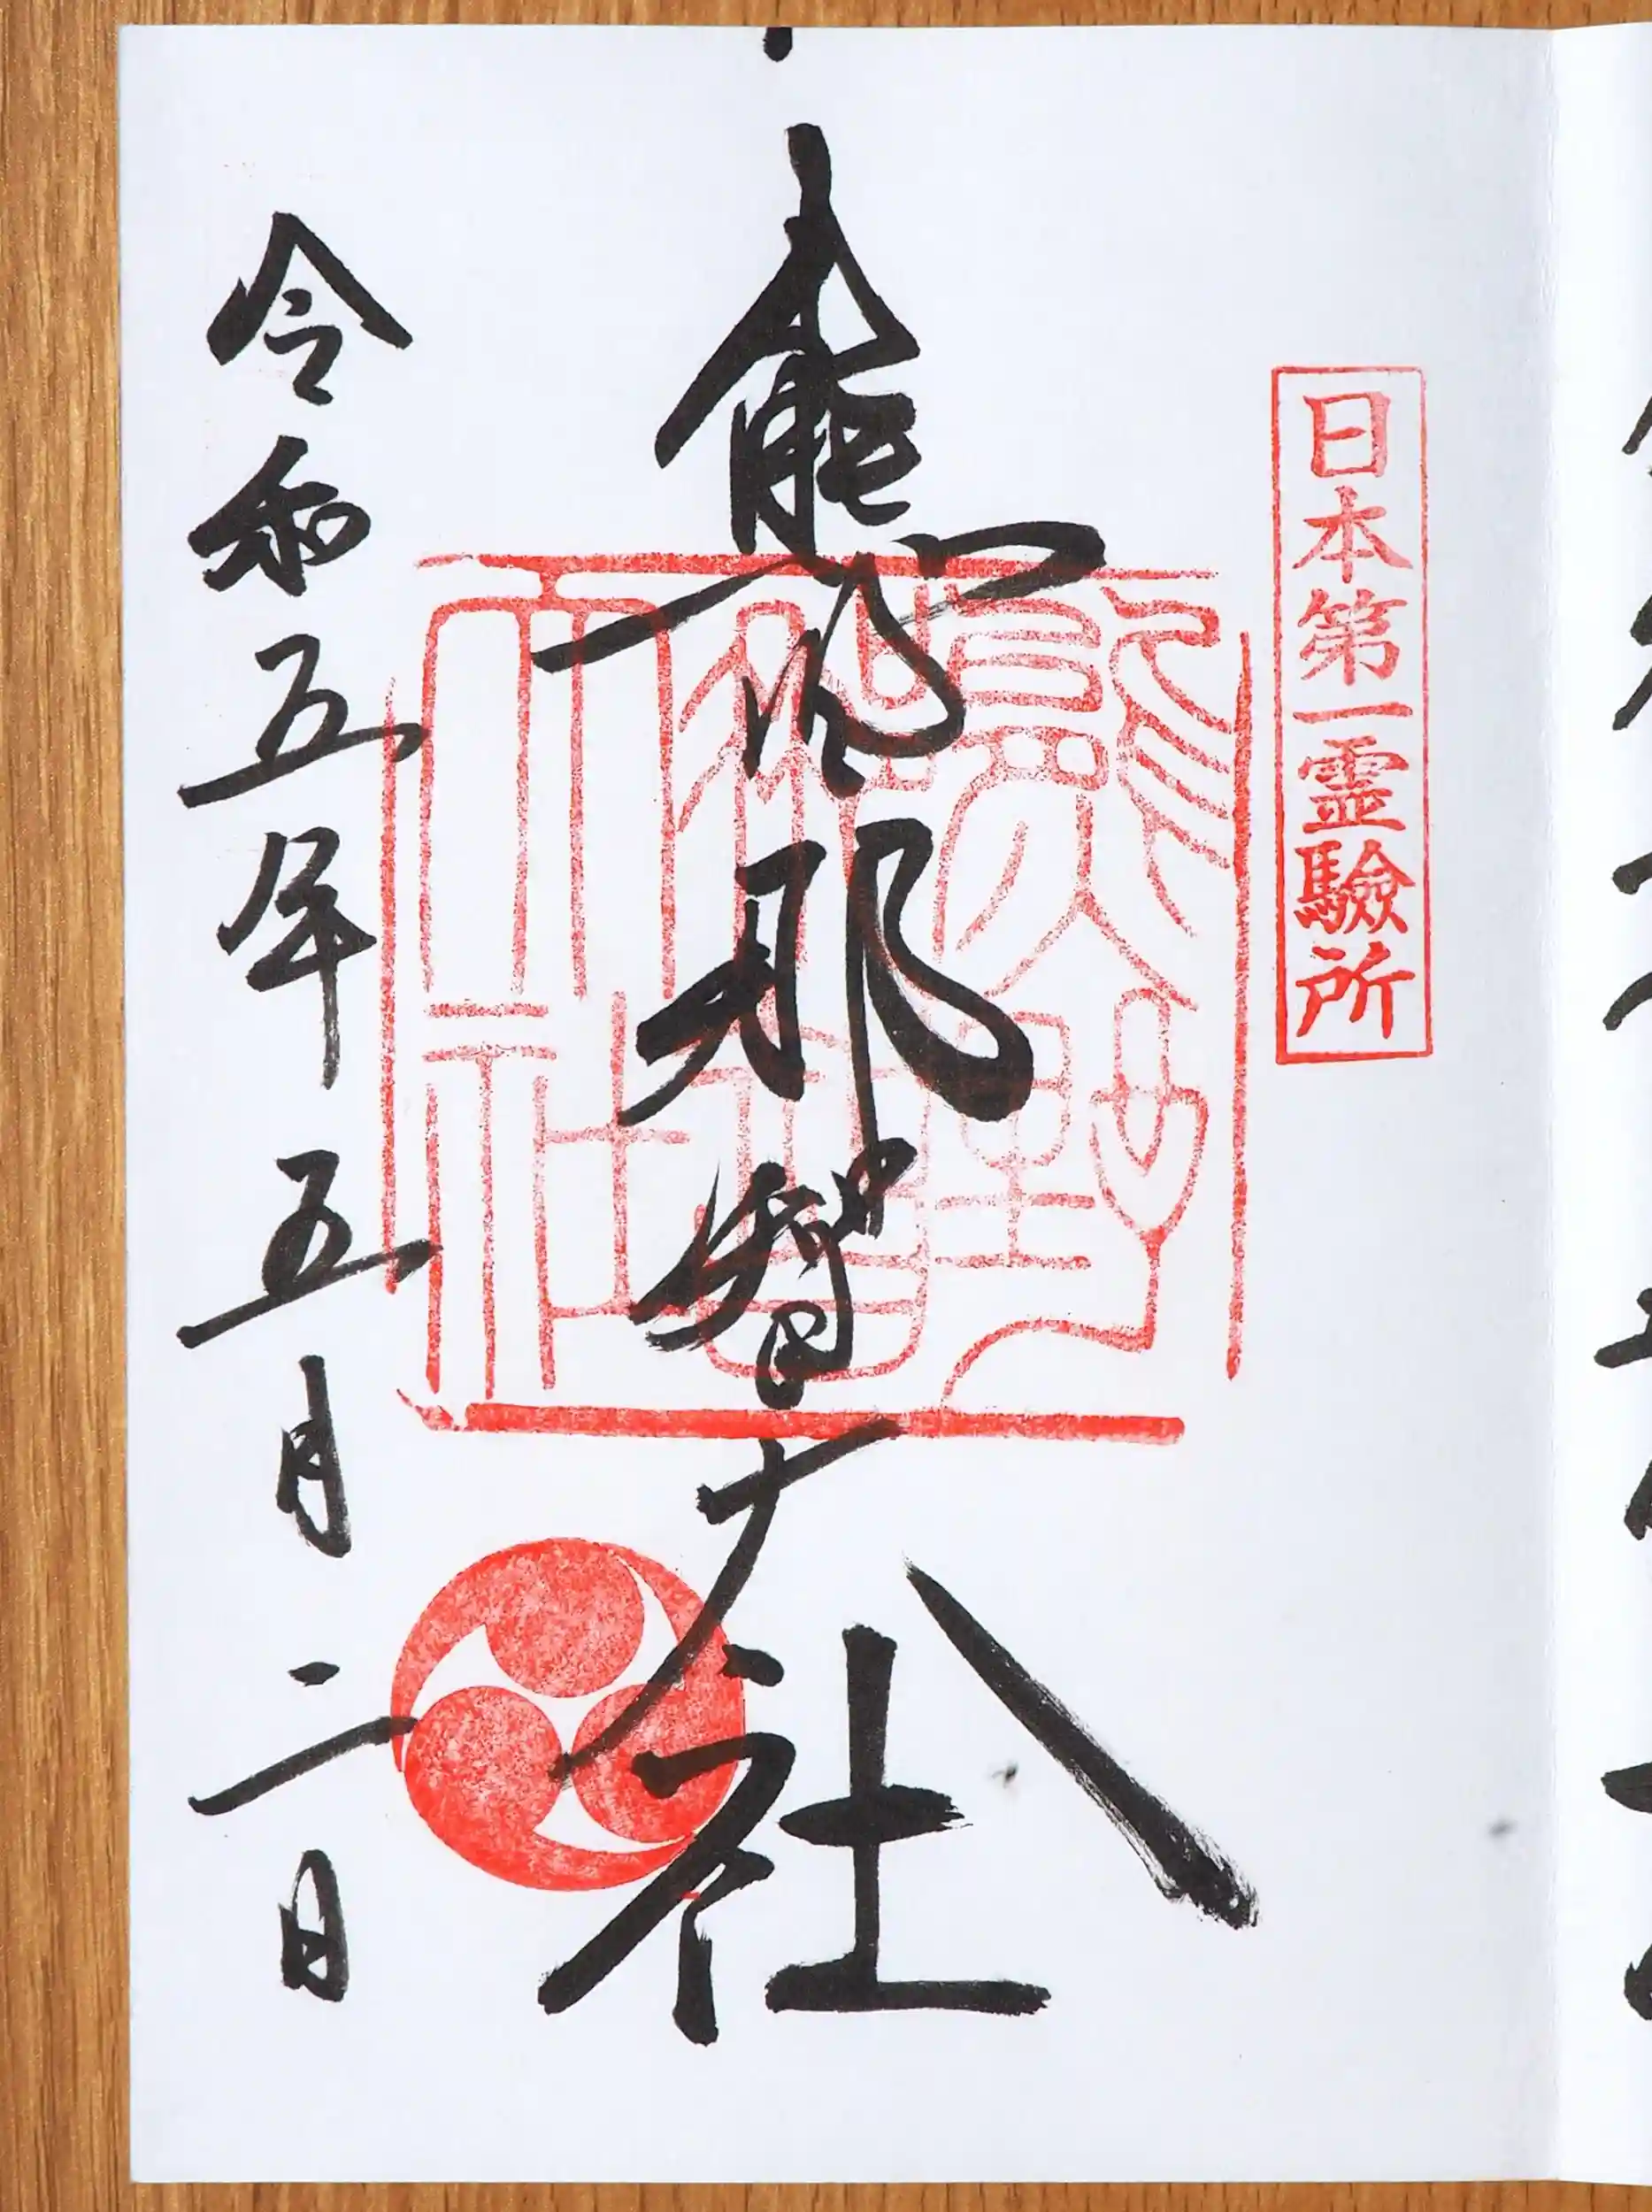 日本第一霊驗所
熊野那智大社
熊野
那智
大社
令和五年五月二日